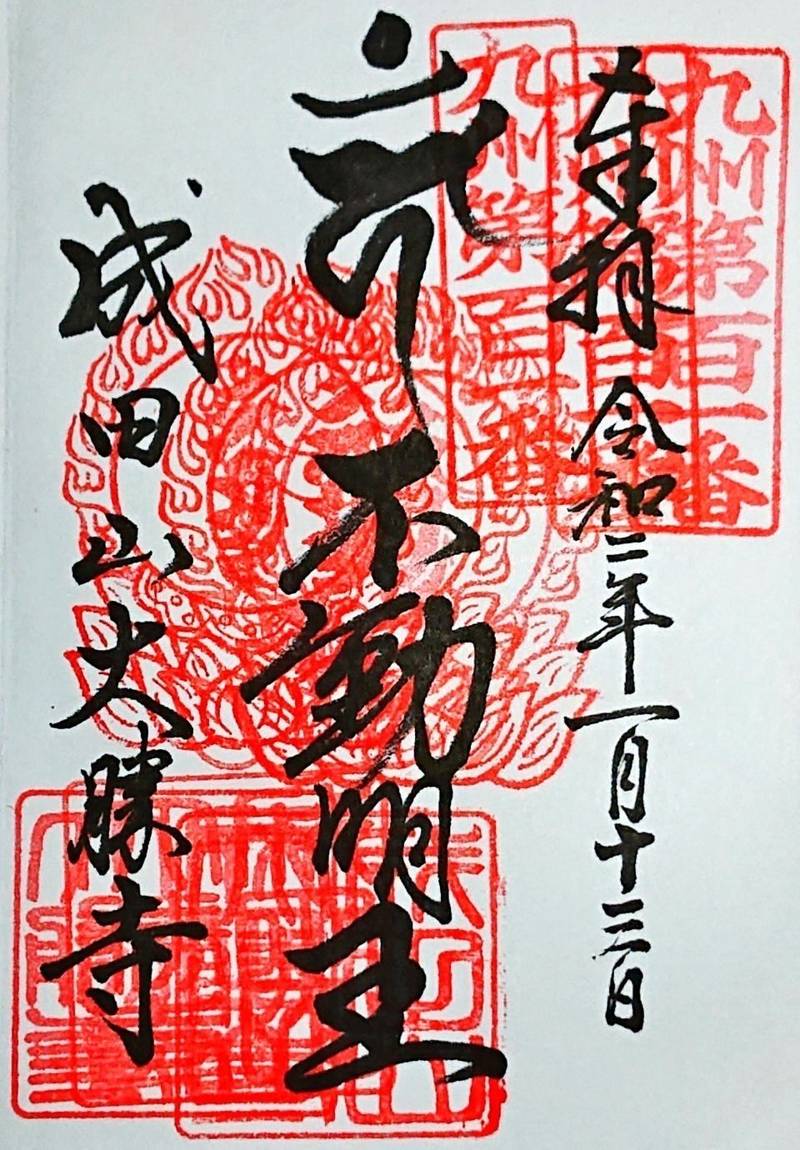 九州第百一番
奉拝 令和二年一月十三日
九州第百一番
不動明王
成田山大勝寺